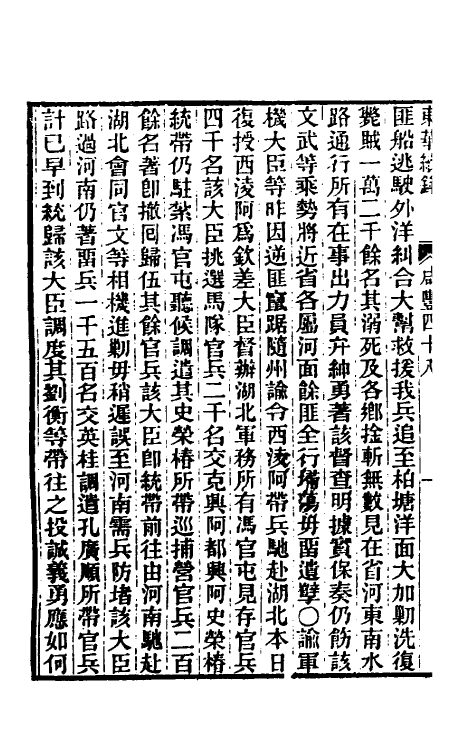 東華續錄 咸豐四十八 一
匪船逃駛外洋糾合大幫救援我兵追至柏塘洋面大加勦洗復
斃賊一萬二千餘名其溺死及各鄉捡斬無數見在省河東南水
路通行所有在事出力員弁紳勇著該督查明據實保奏仍飭該
文武等乘勢將近省各屬河面餘匪全行掃蕩毋畱遺孽〇諭軍
機大臣等昨因逆匪竄踞隨州諭令西淩阿帶兵馳赴湖北本日
復授西淩阿爲欽差大臣督辦湖北軍務所有馮官屯見存官兵
四千名該大臣挑選馬隊官兵二千名交克興阿都興阿史榮椿
統帶仍駐紮馮官屯聽候調遣其史榮椿所帶巡捕營官兵二百
餘名著卽撤囘歸伍其餘官兵該大臣卽統帶前往由河南馳赴
湖北會同官文等相機進勦毋稍遲誤至河南需兵防堵該大臣
路過河南仍著畱兵一千五百名交英桂調遣孔廣順所帶官兵
計已早到統歸該大臣調度其劉衡等帶往之投誠義勇應如何